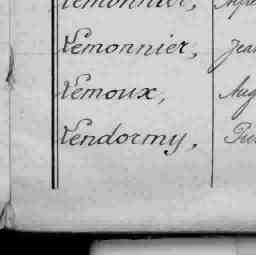 Lemonnier,
Lemonnier, Jean
Lemoux, Aug
Lendormy,